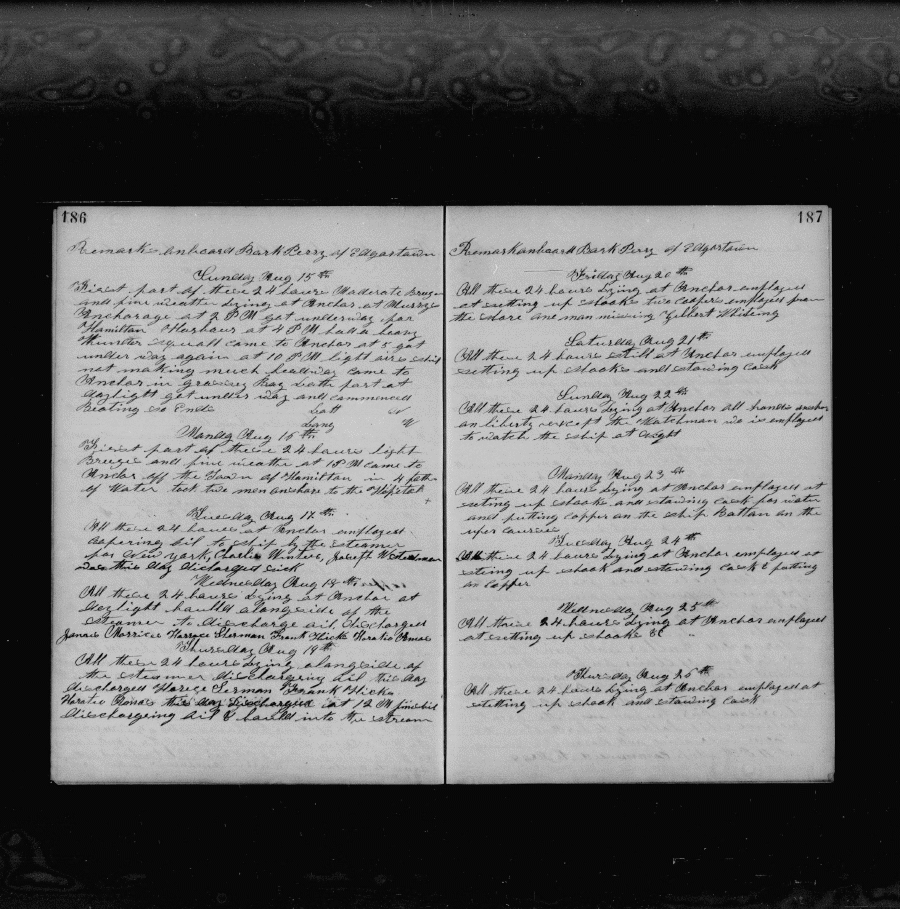 186
Remarks onboard Bark Perry of Edgartown
Sunday Aug 15th
First part of these 24 hours Moderate
and fine weather Lying at Anchor at Murrys
Anchorage at 2 P M got underway for
Hamilton Harbour at 4 P M had a heavy
thunder squall came to Anchor at 5 got
under way again at 10 P M light airs ship
not making much headway came to
Anchor in grassey Bay Latt part at
daylight got under way and commenced
Beating So Ends
Latt N
Long W
Monday Aug 16th
First part of these 24 hours light
and fine weather at 1 P M came to
Anchor off the Town of Hamilton in 4 fath
of Water took two men onshore to the
Tuesday Aug 17th
All these 24 hours at Anchor employed
Coopering oil to ship by the steamer
for New york, Charles Winters, Joseph
was this day discharged sick
Wednesday Aug 18th
All these 24 hours Lying at Anchor at
Daylight hauld alongside of the
steamer to discharge oil, Discharged
Frank Hicks Horatio
Thursday Aug 19th
All these 24 hours Lying alongside of
the steamer discharging oil this day
discharged Frank Hicks
Horatio this day Discharged at 12 M
dischargeing oil & hauld into the stream
187
Remark onboard Bark Perry of Edgartown
Friday Aug 20th
All these 24 hours Lying at Anchor employed
at setting up shooks two coopers employed from
the shore one man missing Gilbert
Saturday Aug 21th
All these 24 hours still at Anchor employed
setting up shooks and stowing cask
Sunday Aug 22th
All these 24 hours Lying at Anchor all hands
on liberty except the Watchman employed
to watch the ship at night
Monday Aug 23th
All these 24 hours Lying at Anchor employed at
seting up shooks and stowing cask for water
and putting copper on the ship Bottom on the
courses
Tuesday Aug 24th
these 24 hours Lying at Anchor employed at
seting up shook and stowing cask & putting
on copper
Wednesday Aug 25th
All these 24 hours Lying at Anchor employed
at setting up shooks &c
Thursday Aug 26th
All these 24 hours Lying at Anchor employed at
setting up shook and stowing cask